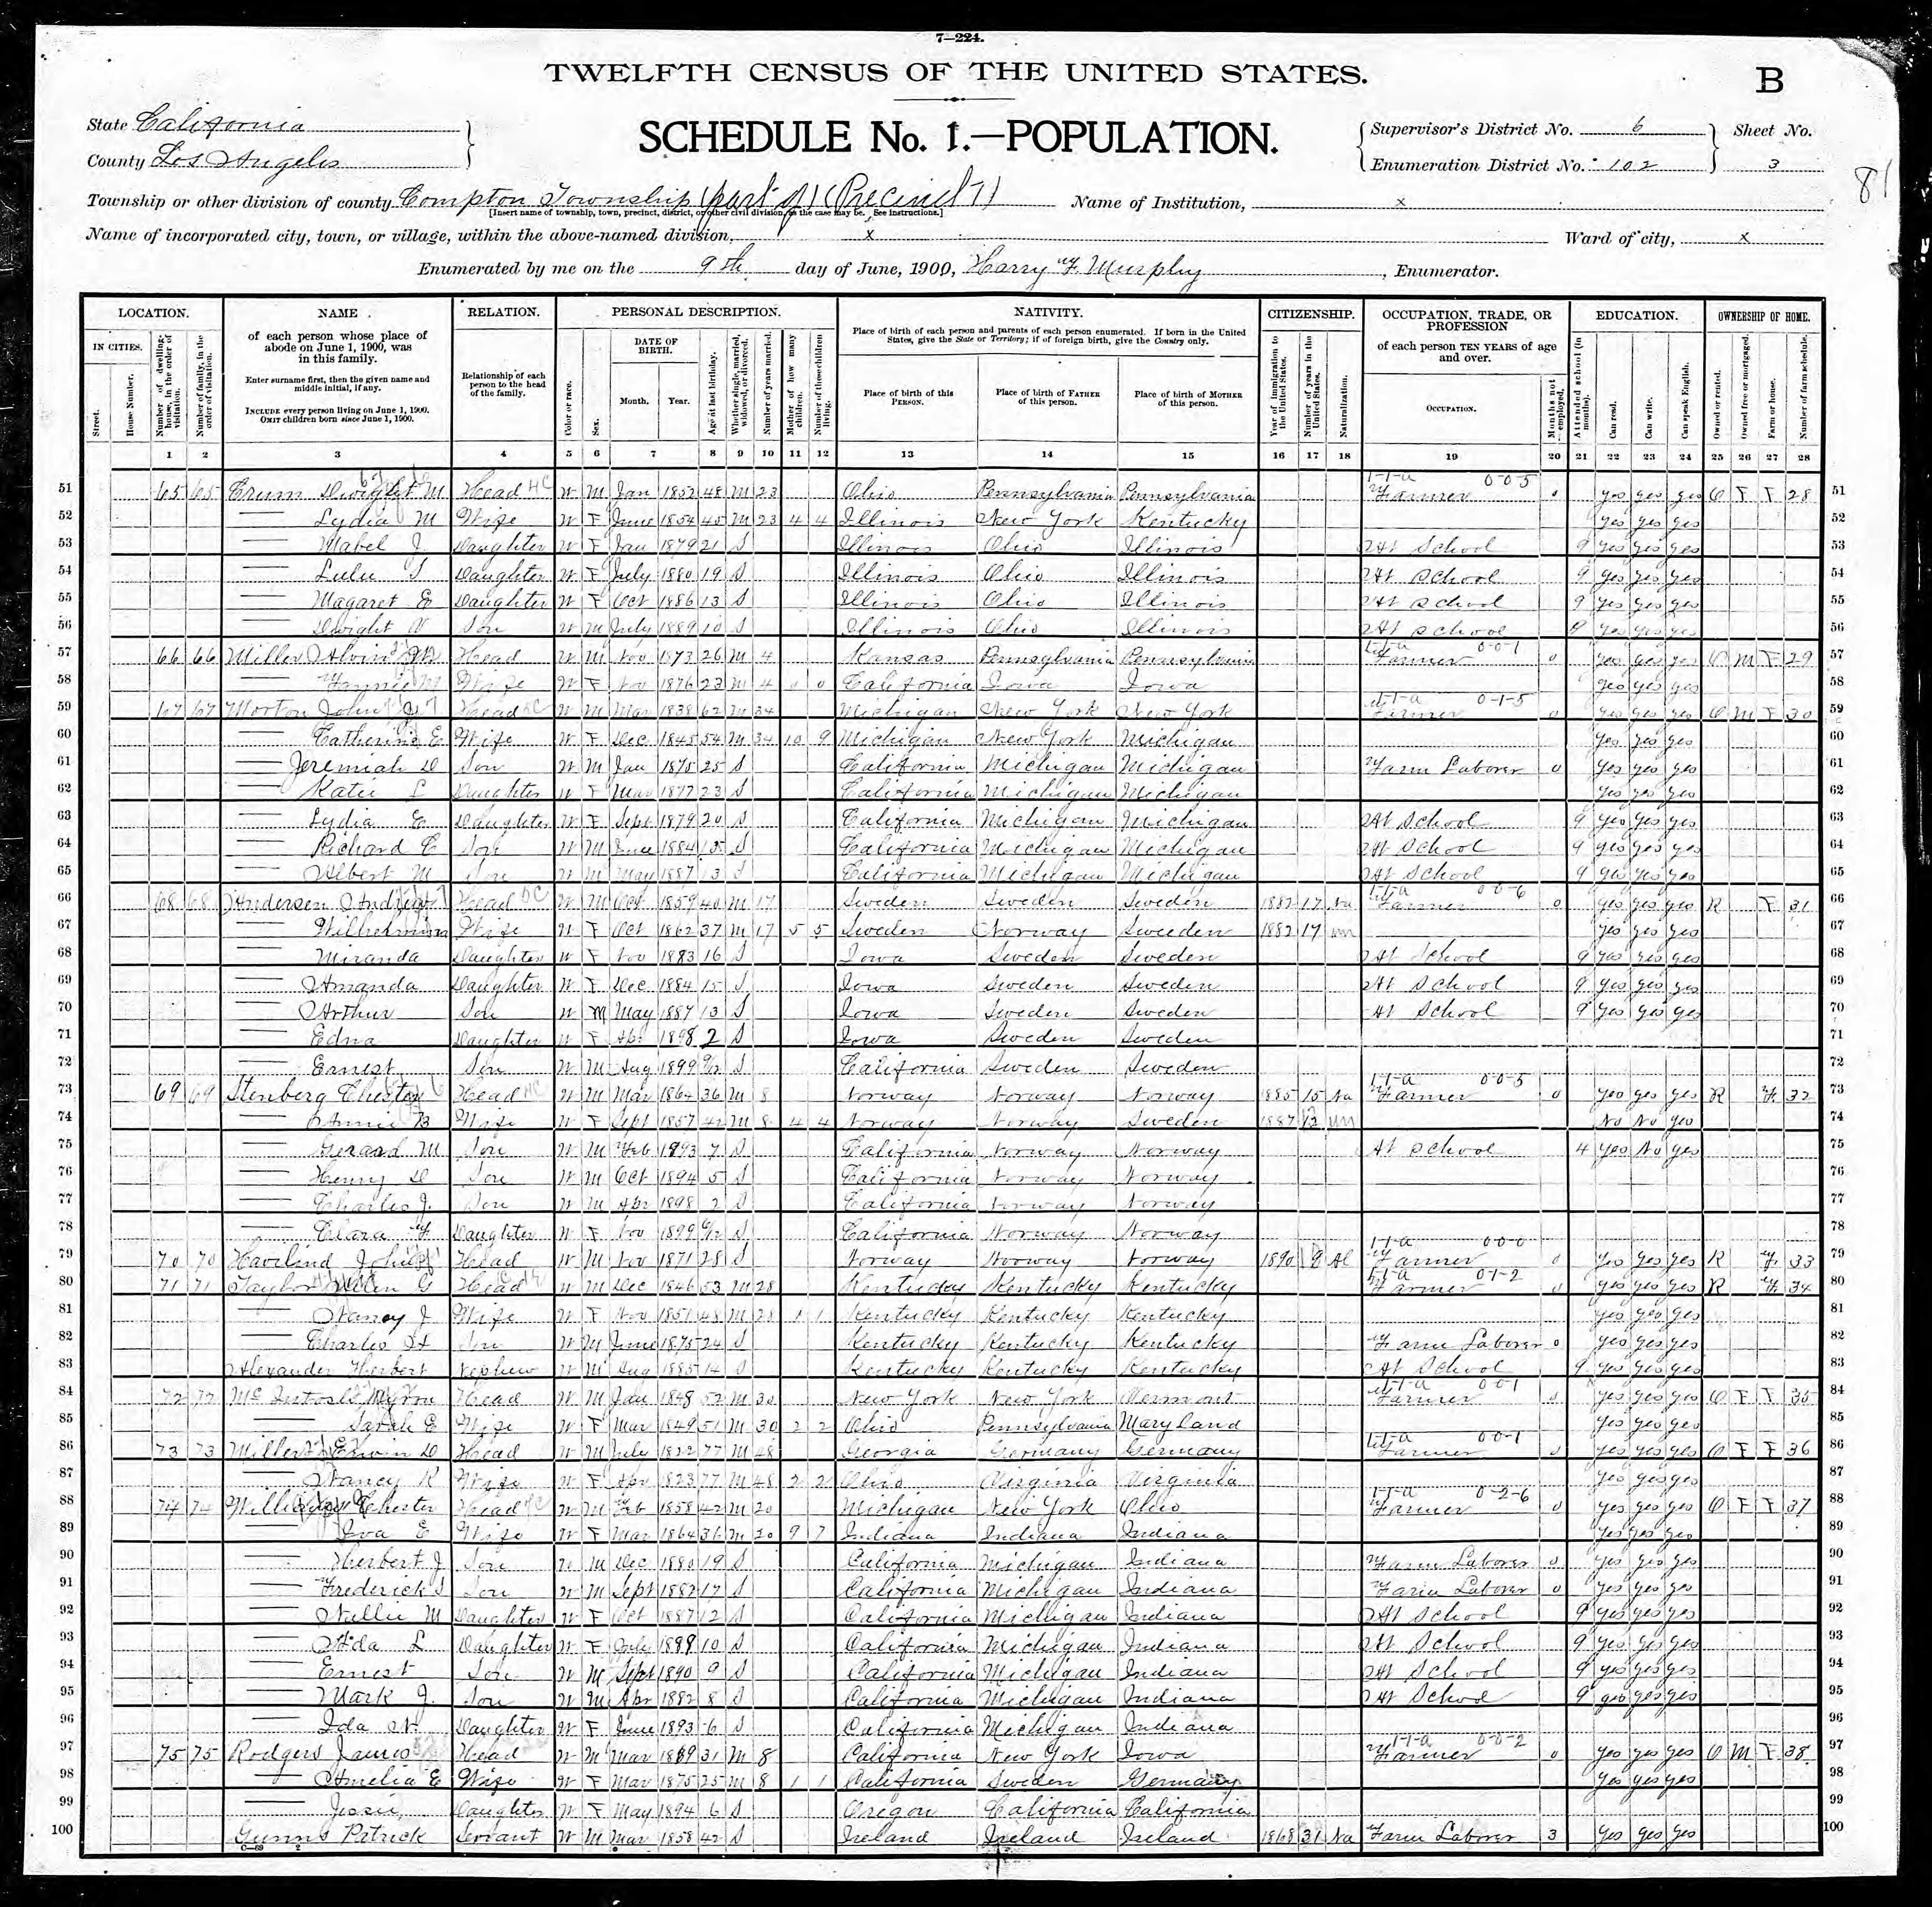 7—224.
TWELFTH CENSUS OF THE UNITED STATES.
B
State California
SCHEDULE No. 1.—POPULATION.
Supervisor's District No. 6 Sheet No.
County Los Angeles
Enumeration District No. 102 3
81
Township or other division of county Compton Township (part of) (Precinct 7) Name of Institution, x
[Insert name of township, town, precinct, district, or other civil division, as the case may be. See instructions.]
Name of incorporated city, town, or village, within the above-named division, x Ward of city, x
Enumerated by me on the 9th day of June, 1900, Harry F. Murphy, Enumerator.
LOCATION. NAME RELATION. PERSONAL DESCRIPTION. NATIVITY. CITIZENSHIP. OCCUPATION, TRADE, OR PROFESSION EDUCATION. OWNERSHIP OF HOME.
IN CITIES.
Street.
House Number.
Number of dwelling-house, in the order of visitation.
Number of family, in the order of visitation.
of each person whose place of abode on June 1, 1900, was in this family.
Enter surname first, then the given name and middle initial, if any.
INCLUDE every person living on June 1, 1900.
OMIT children born since June 1, 1900.
Relationship of each person to the head of the family.
Color or race.
Sex.
DATE OF BIRTH.
Month. Year.
Age at last birthday.
Whether single, married, widowed, or divorced.
Number of years married.
Mother of how many children.
Number of these children living.
Place of birth of each person and parents of each person enumerated. If born in the United States, give the State or Territory; if of foreign birth, give the Country only.
Place of birth of this PERSON.
Place of birth of FATHER of this person.
Place of birth of MOTHER of this person.
Year of immigration to the United States.
Number of years in the United States.
Naturalization.
of each person TEN YEARS of age and over.
OCCUPATION.
Months not employed.
Attended school (in months).
Can read.
Can write.
Can speak English.
Owned or rented.
Owned free or mortgaged.
Farm or house.
Number of farm schedule.
1 2 3 4 5 6 7 8 9 10 11 12 13 14 15 16 17 18 19 20 21 22 23 24 25 26 27 28
51 65 65 Crum Dwight M Head W M Jan 1852 48 M 23 Ohio Pennsylvania Pennsylvania Farmer 0 yes yes yes O F F 28 51
52 Lydia M Wife W F June 1854 45 M 23 4 4 Illinois New York Kentucky yes yes yes 52
53 Mabel J. Daughter W F Jan 1879 21 S Illinois Ohio Illinois At School 9 yes yes yes 53
54 Lulu Daughter W F July 1880 19 S Illinois Ohio Illinois At School 9 yes yes yes 54
55 Magaret E Daughter W F Oct 1886 13 S Illinois Ohio Illinois At School 9 yes yes yes 55
56 Dwight Son W M July 1889 10 S Illinois Ohio Illinois At School 9 yes yes yes 56
57 66 66 Miller Alvin Head W M Nov 1873 26 M 4 Kansas Pennsylvania Pennsylvania Farmer 0 yes yes yes O M F 29 57
58 Fannie M Wife W F Nov 1876 23 M 4 0 0 California Iowa Iowa yes yes yes 58
59 67 67 Morton John Head W M Mar 1838 62 M 34 Michigan New York New York Farmer 0 yes yes yes O M F 30 59
60 Catherine E Wife W F Dec 1845 54 M 34 10 9 Michigan New York Michigan yes yes yes 60
61 Jeremiah D Son W M Jan 1875 25 S California Michigan Michigan Farm Laborer 0 yes yes yes 61
62 Katie L Daughter W F Mar 1877 23 S California Michigan Michigan yes yes yes 62
63 Lydia E Daughter W F Sept 1879 20 S California Michigan Michigan At School 9 yes yes yes 63
64 Richard C Son W M June 1884 15 S California Michigan Michigan At School 9 yes yes yes 64
65 Albert M Son W M May 1887 13 S California Michigan Michigan At School 9 yes yes yes 65
66 68 68 Andersen Andrew Head W M Oct 1859 40 M 17 Sweden Sweden Sweden 1882 17 Na Farmer 0 yes yes yes R F 31 66
67 Wilhelmina Wife W F Oct 1862 37 M 17 5 5 Sweden Norway Sweden 1882 17 un yes yes yes 67
68 Miranda Daughter W F Nov 1883 16 S Iowa Sweden Sweden At School 9 yes yes yes 68
69 Amanda Daughter W F Dec 1884 15 S Iowa Sweden Sweden At School 9 yes yes yes 69
70 Arthur Son W M May 1887 13 S Iowa Sweden Sweden At School 9 yes yes yes 70
71 Edna Daughter W F Apr 1898 2 S Iowa Sweden Sweden 71
72 Ernest Son W M Aug 1899 9/12 S California Sweden Sweden 72
73 69 69 Stenberg Chester Head W M Mar 1864 36 M 8 Norway Norway Norway 1885 15 Na Farmer 0 yes yes yes R F 32 73
74 Annie B Wife W F Sept 1857 42 M 8 4 4 Norway Norway Sweden 1887 12 un No No yes 74
75 Gerard M Son W M Feb 1893 7 S California Norway Norway At School 4 yes No yes 75
76 Henry D Son W M Oct 1894 5 S California Norway Norway 76
77 Charles J. Son W M Apr 1898 2 S California Norway Norway 77
78 Clara F Daughter W F Nov 1899 6/12 S California Norway Norway 78
79 70 70 Havilind John Head W M Nov 1871 28 S Norway Norway Norway 1890 9 Al Farmer 0 yes yes yes R F 33 79
80 71 71 Taylor G Head W M Dec 1846 53 M 28 Kentucky Kentucky Kentucky Farmer 0 yes yes yes R F 34 80
81 Nancy J Wife W F Nov 1851 48 M 28 1 1 Kentucky Kentucky Kentucky yes yes yes 81
82 Charles H Son W M June 1875 24 S Kentucky Kentucky Kentucky Farm Laborer 0 yes yes yes 82
83 Alexander Herbert Nephew W M Aug 1885 14 S Kentucky Kentucky Kentucky At School 9 yes yes yes 83
84 72 72 McIntosh Myron Head W M Jan 1848 52 M 30 New York New York Vermont Farmer 0 yes yes yes O F F 35 84
85 Sarah E Wife W F Mar 1849 51 M 30 2 2 Ohio Pennsylvania Maryland yes yes yes 85
86 73 73 Miller Erwin D Head W M July 1822 77 M 48 Georgia Germany Germany Farmer 0 yes yes yes O F F 36 86
87 Nancy K Wife W F Apr 1823 77 M 48 2 2 Ohio Virginia Virginia yes yes yes 87
88 74 74 Chester Head W M Feb 1858 42 M 20 Michigan New York Ohio Farmer 0 yes yes yes O F F 37 88
89 Iva E Wife W F Mar 1864 36 M 20 9 7 Indiana Indiana Indiana yes yes yes 89
90 Herbert J Son W M Dec 1880 19 S California Michigan Indiana Farm Laborer 0 yes yes yes 90
91 Frederick S Son W M Sept 1882 17 S California Michigan Indiana Farm Laborer 0 yes yes yes 91
92 Nellie M Daughter W F Oct 1887 12 S California Michigan Indiana At School 9 yes yes yes 92
93 Ada L Daughter W F July 1889 10 S California Michigan Indiana At School 9 yes yes yes 93
94 Ernest Son W M Sept 1890 9 S California Michigan Indiana At School 9 yes yes yes 94
95 Mark J. Son W M Apr 1882 8 S California Michigan Indiana At School 9 yes yes yes 95
96 Ida N. Daughter W F June 1893 6 S California Michigan Indiana 96
97 75 75 Rodgers James Head W M Mar 1869 31 M 8 California New York Iowa Farmer 0 yes yes yes O M F 38 97
98 Amelia E Wife W F Mar 1875 25 M 8 1 1 California Sweden Germany yes yes yes 98
99 Jessie Daughter W F May 1894 6 S Oregon California California 99
100 Gunns Patrick Servant W M Mar 1858 42 S Ireland Ireland Ireland 1868 31 Na Farm Laborer 3 yes yes yes 100